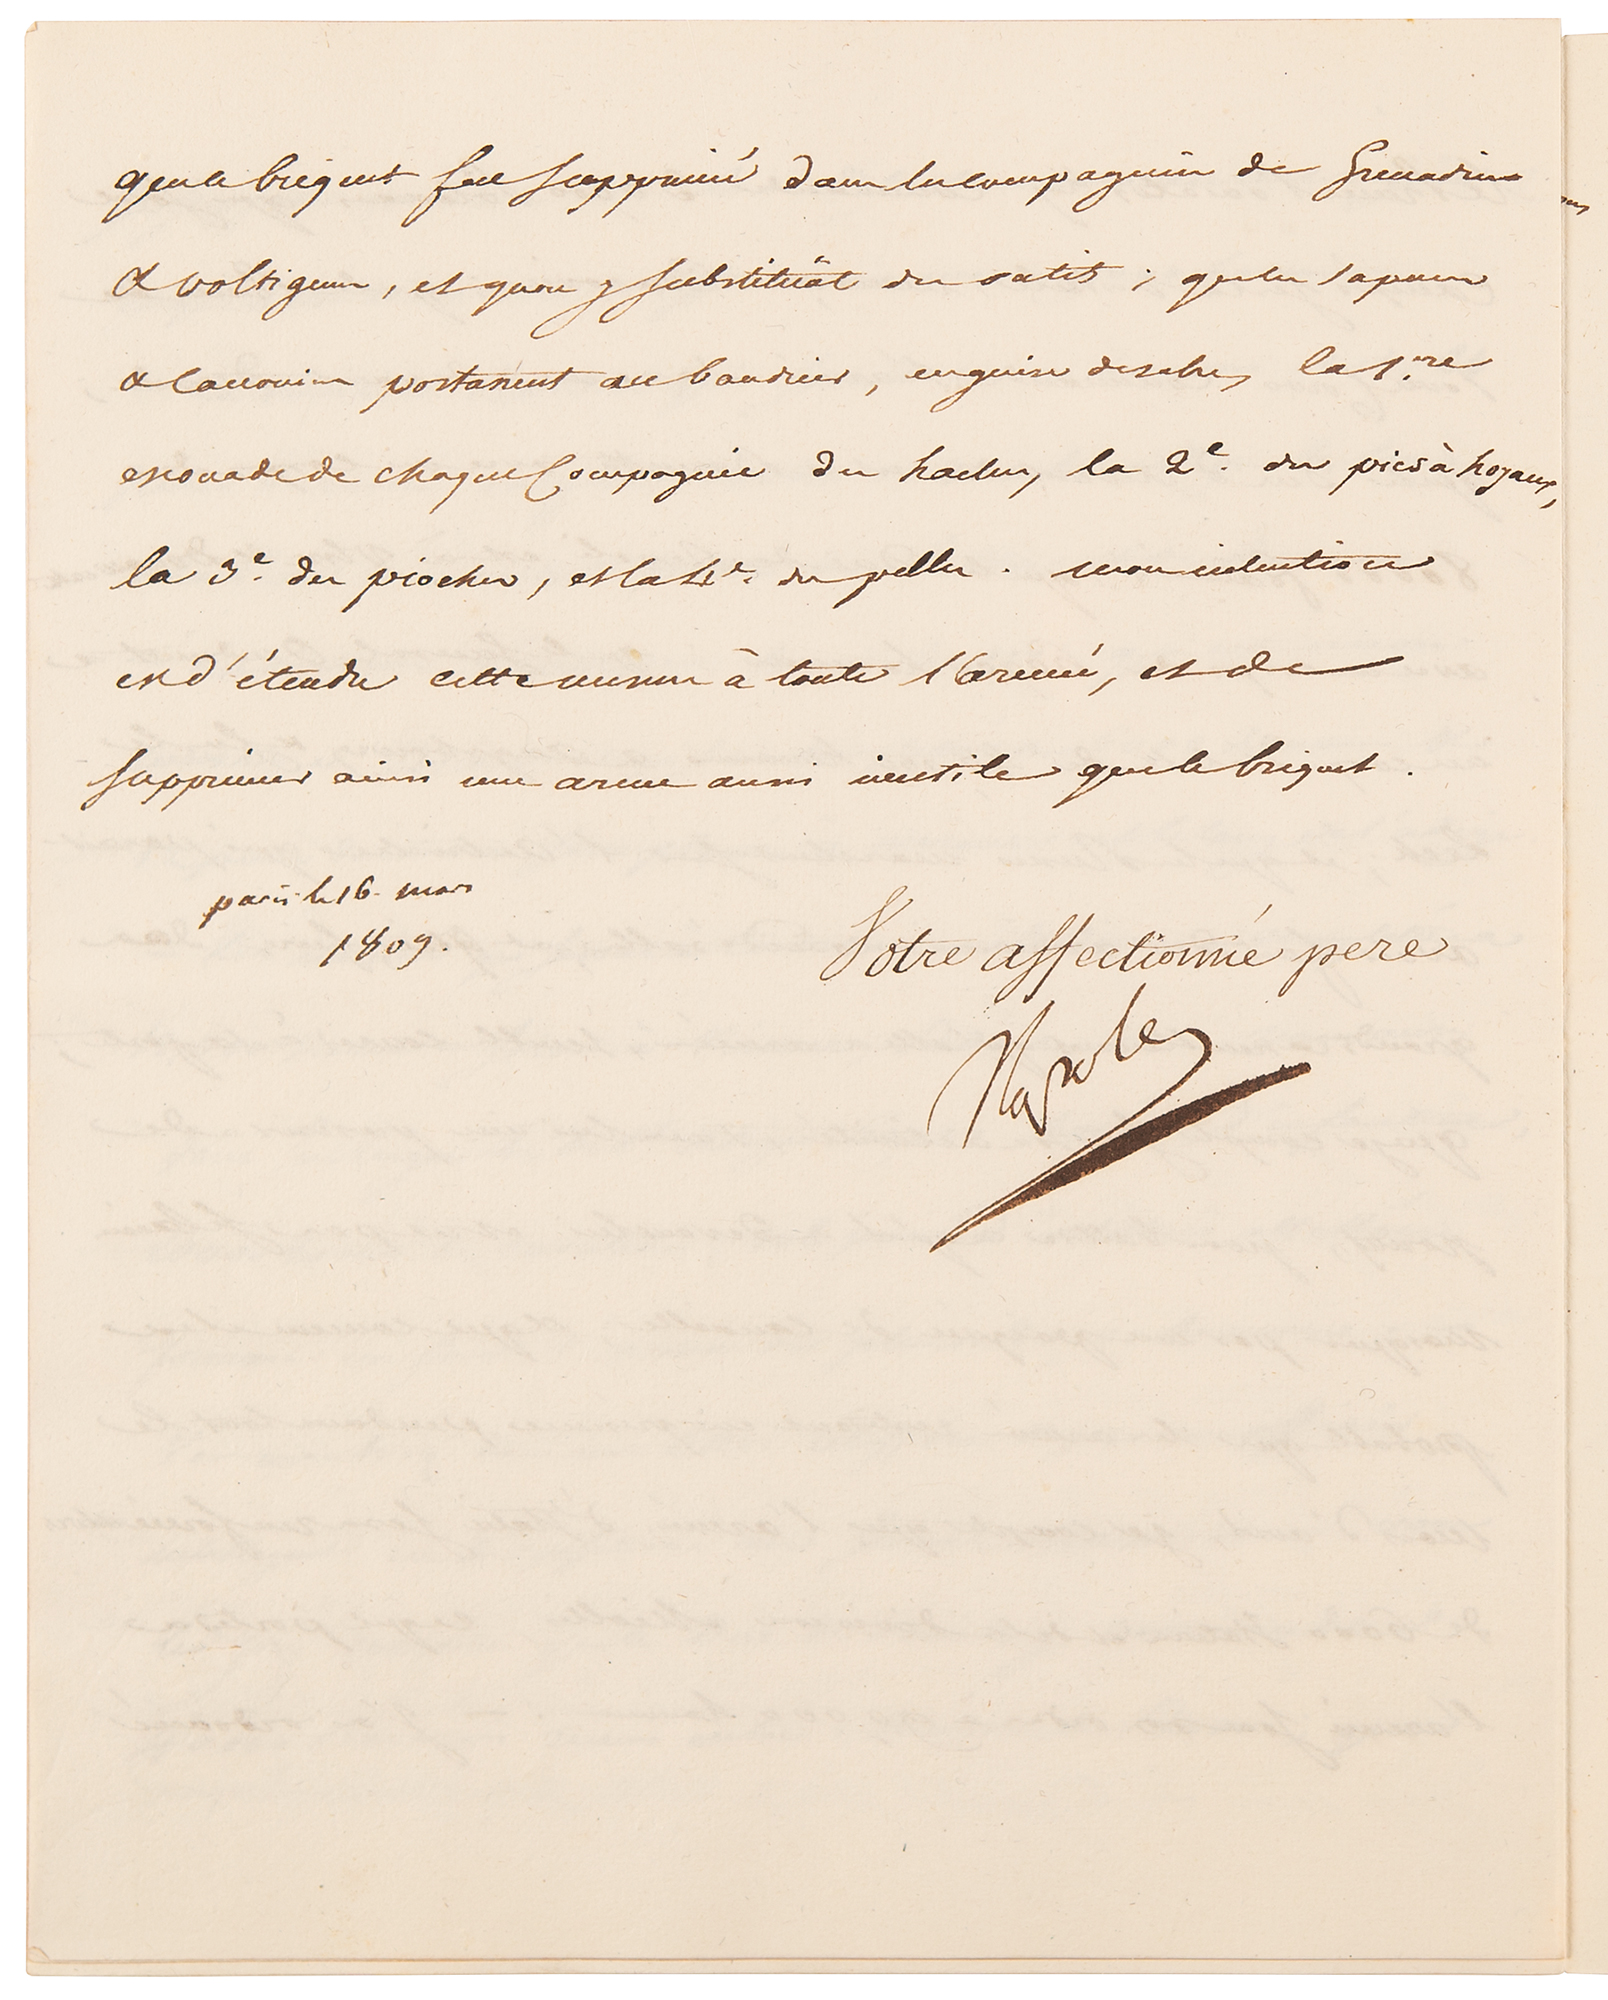 que le briquet fut supprimé dans les compagnies de Grenadiers
& voltigeurs, et qu'on y substituât des outils ; que les sapeurs
& Canoniers portassent au baudrier, en guise de sabre, la 1.re
escouade de chaque Compagnie des haches, la 2e. des pics à hoyaux,
la 3e. des pioches, et la 4e. des pelles. mon intention
est d'étendre cette mesure à toute l'armée, et de
supprimer ainsi une arme aussi inutile que le briquet.
paris le 16 mars
1809.
Votre affectionné pere
Napole